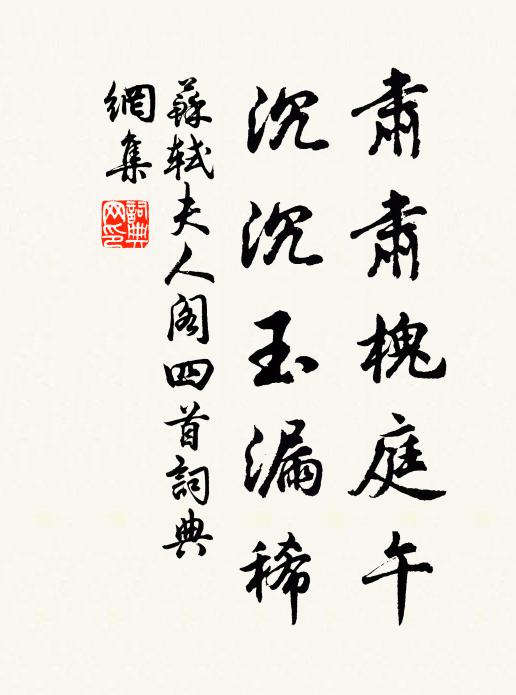 肅肅槐庭午
沉沉玉漏稀
蘇軾夫人閣四首詞典
網集
詞典
网印